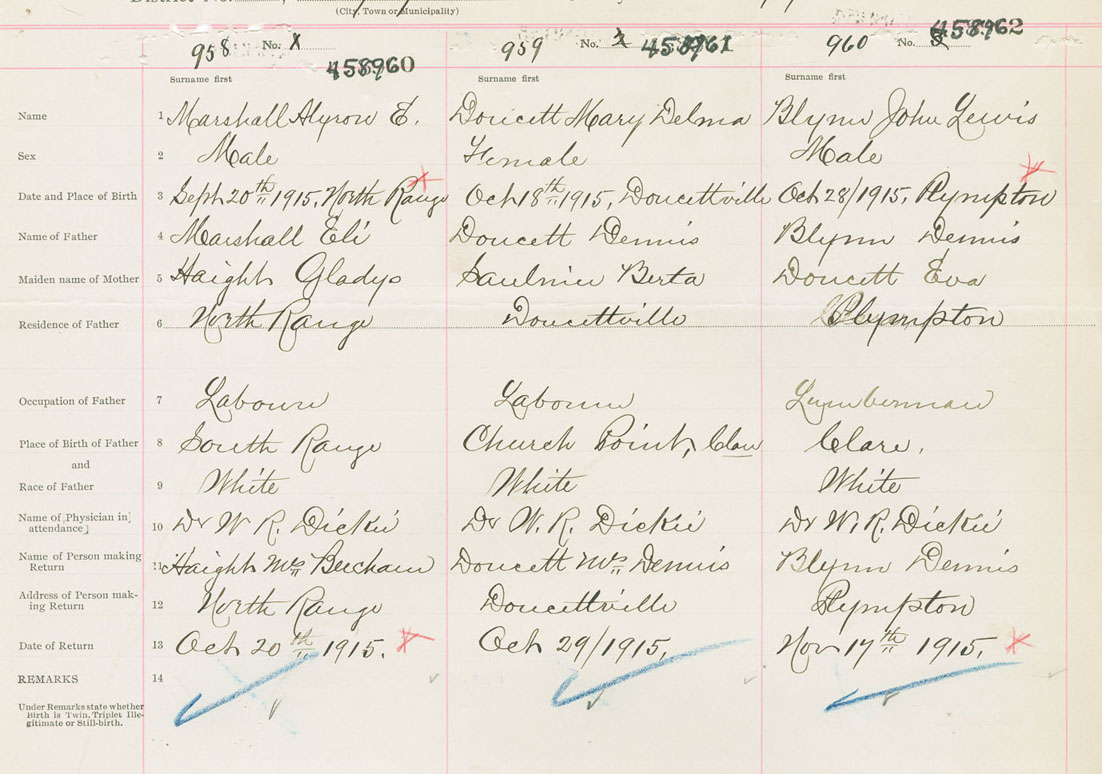 (City, Town or Municipality)
958 No. 1 458960 959 No. 2 458961 960 No. 3 458962
Surname first Surname first Surname first
Name 1 Marshall Alyrow E. Doucett Mary Delma Blynn John Lewis
Sex 2 Male Female Male
Date and Place of Birth 3 Sept 20th 1915, North Range Oct 18th 1915, Doucettville Oct 28/1915, Plympton
Name of Father 4 Marshall Eli Doucett Dennis Blynn Dennis
Maiden name of Mother 5 Haight Gladys Saulnier Berta Doucett Eva
Residence of Father 6 North Range Doucettville Plympton
Occupation of Father 7 Labourer Labourer Lumberman
Place of Birth of Father 8 South Range Church Point, Clare Clare,
and
Race of Father 9 White White White
Name of [Physician in attendance] 10 Dr W R. Dickie Dr W. R. Dickie Dr W. R. Dickie
Name of Person making Return 11 Haight Mrs Beecham Doucett Mrs Dennis Blynn Dennis
Address of Person making Return 12 North Range Doucettville Plympton
Date of Return 13 Oct 20th 1915. Oct 29/1915. Nov 17th 1915.
REMARKS 14
Under Remarks state whether
Birth is Twin, Triplet Ille-
gitimate or Still-birth.